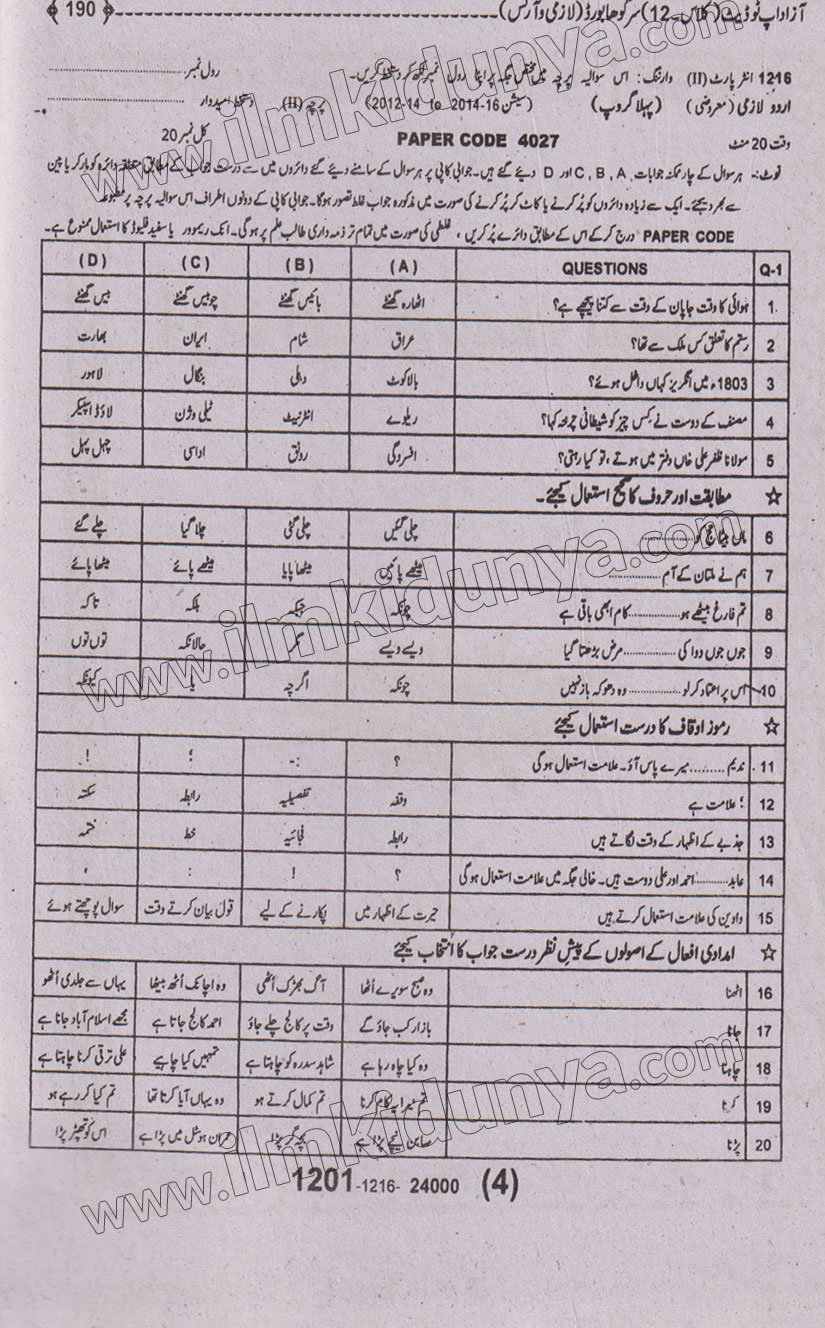 آزاد اپ ٹو ڈیٹ (کلاس۔12) سرگودھا بورڈ (لازمی و آرٹس) ﴿ 190 ﴾
1216 انٹر پارٹ (II) وارننگ: اس سوالیہ پرچہ میں مختص جگہ پر اپنا رول نمبر لکھ کر دستخط کریں۔ رول نمبر
اردو لازمی (معروضی) (پہلا گروپ) (سیشن 16-2014 to 2012-14) پرچہ (II) دستخط امیدوار
وقت 20 منٹ PAPER CODE 4027 کل نمبر 20
نوٹ:- ہر سوال کے چار ممکنہ جوابات A ,B ,C اور D دیئے گئے ہیں۔ جوابی کاپی پر ہر سوال کے سامنے دیئے گئے دائروں میں سے درست جواب کے مطابق متعلقہ دائرہ کو مارکر یا پین
سے بھر دیجئے۔ ایک سے زیادہ دائروں کو پُر کرنے یا کاٹ کر پُر کرنے کی صورت میں مذکورہ جواب غلط تصور ہوگا۔ جوابی کاپی کے دونوں اطراف اس سوالیہ پرچہ پر مطبوعہ
PAPER CODE درج کر کے اس کے مطابق دائرے پُر کریں، غلطی کی صورت میں تمام تر ذمہ داری طالب علم پر ہوگی۔ انک ریموور یا سفید فلیوڈ کا استعمال ممنوع ہے۔
Q-1 QUESTIONS (A) (B) (C) (D)
1 ہوائی کا وقت جاپان کے وقت سے کتنا پیچھے ہے؟ اٹھارہ گھنٹے بائیس گھنٹے چوبیس گھنٹے بیس گھنٹے
2 رستم کا تعلق کس ملک سے تھا؟ عراق شام ایران بھارت
3 1803ء میں انگریز کہاں داخل ہوئے؟ بالاکوٹ دہلی بنگال لاہور
4 مصنف کے دوست نے کس چیز کو شیطانی چرخہ کہا؟ ریلوے انٹرنیٹ ٹیلی ویژن لاؤڈ اسپیکر
5 مولانا ظفر علی خاں دفتر میں ہوتے، تو کیا رہتی؟ افسردگی رونق اداسی چہل پہل
☆ مطابقت اور حروف کا صحیح استعمال کیجئے۔
6 ماں بیٹا حج کو ............ چلی گئیں چلی گئی چلا گیا چلے گئے
7 ہم نے ملتان کے آم ............ میٹھے پائیں میٹھا پایا میٹھے پائے میٹھا پائے
8 تم فارغ بیٹھے ہو ............ کام ابھی باقی ہے چونکہ جبکہ بلکہ تاکہ
9 جوں جوں دوا کی ............ مرض بڑھتا گیا ویسے ویسے مگر حالانکہ توں توں
10 اس پر اعتماد کرلو ............ وہ دھوکہ باز نہیں چونکہ اگرچہ یا کیونکہ
☆ رموز اوقاف کا درست استعمال کیجئے
11 ندیم ......... میرے پاس آؤ۔ علامت استعمال ہوگی ؟ :- ؛ !
12 ؛ علامت ہے وقفہ تفصیلیہ رابطہ سکتہ
13 جذبے کے اظہار کے وقت لگاتے ہیں رابطہ فجائیہ خط ختمہ
14 عابد ......... احمد اور علی دوست ہیں۔ خالی جگہ میں علامت استعمال ہوگی ؟ ! : ،
15 واوین کی علامت استعمال کرتے ہیں حیرت کے اظہار میں پکارنے کے لیے قول بیان کرتے وقت سوال پوچھتے ہوئے
☆ امدادی افعال کے اصولوں کے پیش نظر درست جواب کا انتخاب کیجئے
16 اٹھنا وہ صبح سویرے اُٹھا آگ بھڑک اُٹھی وہ اچانک اُٹھ بیٹھا یہاں سے جلدی اُٹھو
17 جانا بازار کب جاؤ گے وقت پر کالج چلے جاؤ احمد کالج جاتا ہے مجھے اسلام آباد جانا ہے
18 چاہنا وہ کیا چاہ رہا ہے شاہد سدرہ کو چاہتا ہے تمہیں کیا چاہیے علی ترقی کرنا چاہتا ہے
19 کرنا تم میرا یہ کام کرنا تم کمال کرتے ہو وہ یہاں آیا کرتا تھا تم کیا کر رہے ہو
20 پڑنا صابن نیچے پڑا ہے بچہ گر پڑا عمران ہوسٹل میں پڑا ہے اس کو تھپڑ پڑا
1201-1216- 24000 (4)
www.ilmkidunya.com
www.ilmkidunya.com
www.ilmkidunya.com